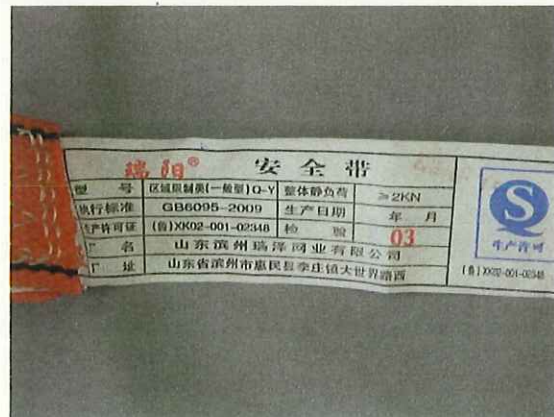 瑞阳® 安全带
型 号 区域限制类(一般型)Q-Y 整体静负荷 ≥2KN
执行标准 GB6095-2009 生产日期 年 月
生产许可证 (鲁)XK02-001-02348 检 验 03
厂 名 山东滨州瑞泽网业有限公司
厂 址 山东省滨州市惠民县李庄镇大世界路西
生产许可
(鲁)XK02-001-02348